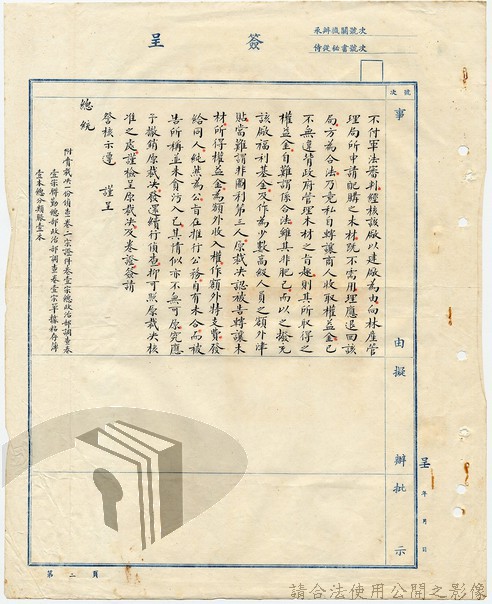 簽呈
承辦機關號次
侍從秘書號次
號次
事由
擬辦
批示
呈 年 月 日
不付軍法審判經核該廠以建廠為由向林產管
理局所申請配購之木材既不需用理應退回該
局方為合法乃竟私自轉讓商人收取權益金已
不無違背政府管理木材之旨趣則其所取得之
權益金自難謂係合法雖其非肥己而以之撥充
該廠福利基金及作為少數高級人員之額外津
貼當難謂非圖利第三人原裁決認被告轉讓木
材所得權益金為額外收入權作額外特支費發
給同人純然為公旨在推行公務自有未合而被
告所稱並未貪污入己其情似亦不無可原究應
予撤銷原裁決發還續行偵查抑可照原裁決核
准之處謹檢呈原裁決及卷證簽請
詧核示遵 謹呈
總統
附賫裁決一份偵查卷二宗證件卷壹宗總政治部調查卷
壹宗聯勤總部政治部調查卷壹宗單據粘存簿
壹本總分類賬壹本
第二頁
請合法使用公開之影像